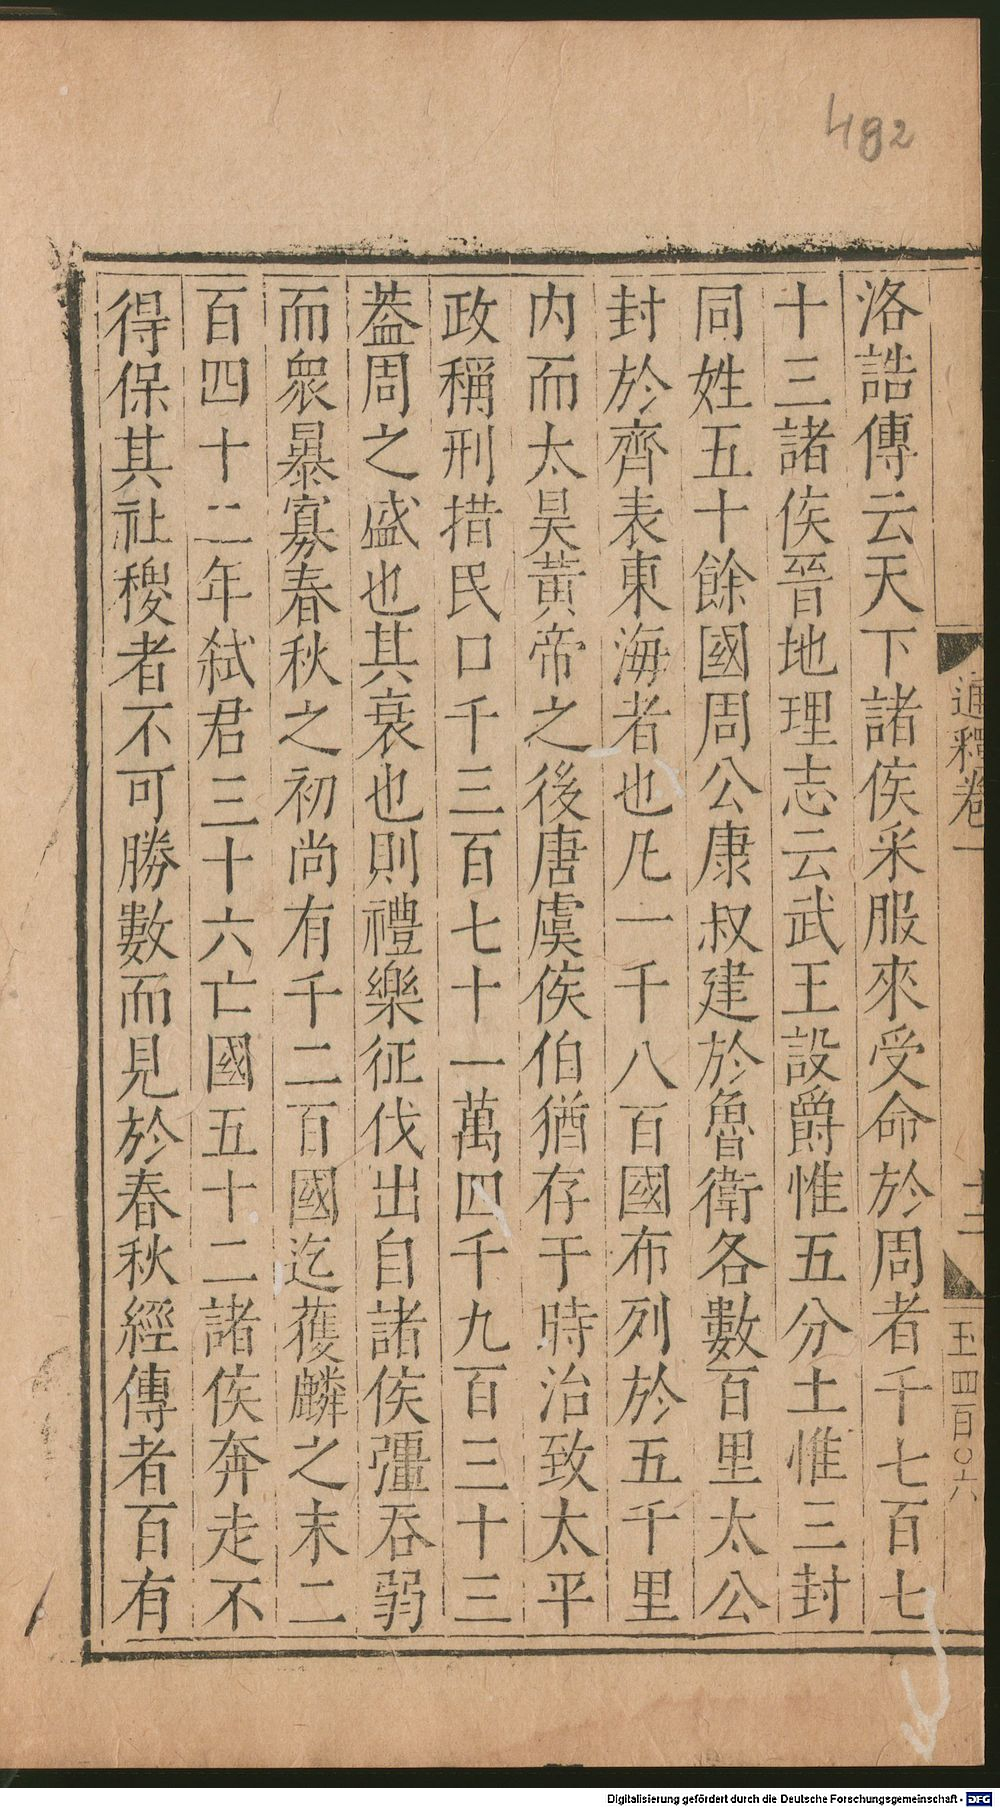 482
通釋卷一
十二
玉四百〇六
洛誥傳云天下諸侯采服來受命於周者千七百七
十三諸侯晉地理志云武王設爵惟五分土惟三封
同姓五十餘國周公康叔建於魯衛各數百里太公
封於齊表東海者也凡一千八百國布列於五千里
内而太昊黃帝之後唐虞侯伯猶存于時治致太平
政稱刑措民口千三百七十一萬四千九百三十三
葢周之盛也其衰也則禮樂征伐出自諸侯彊吞弱
而衆暴寡春秋之初尚有千二百國迄獲麟之末二
百四十二年弑君三十六亡國五十二諸侯奔走不
得保其社稷者不可勝數而見於春秋經傳者百有
Digitalisierung gefördert durch die Deutsche Forschungsgemeinschaft - DFG